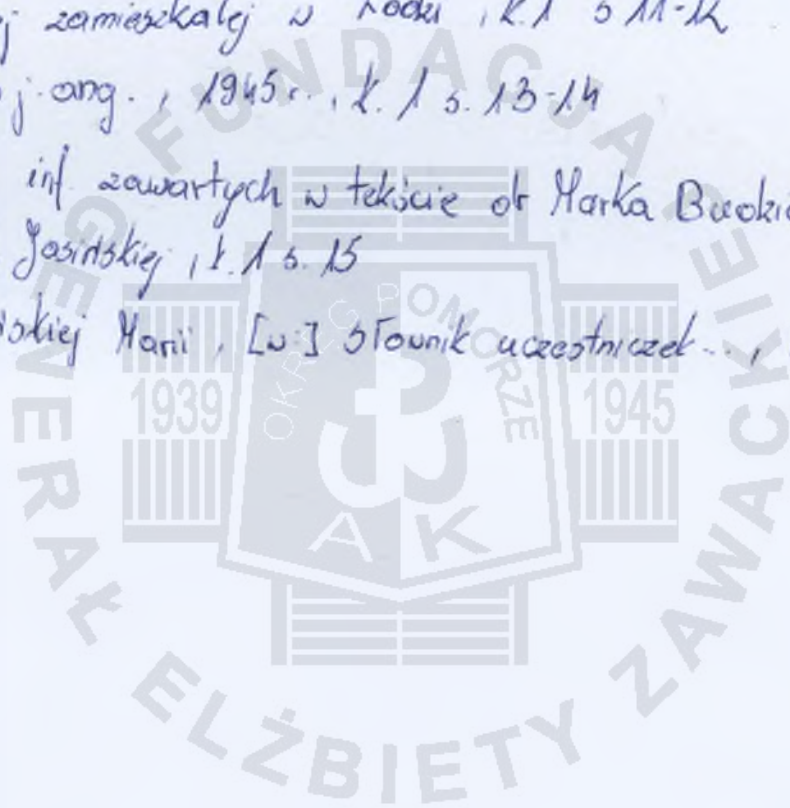 j zamieszkałej w Łodzi, k. 1 s 11-12
j. ang., 1945 r., k. 1 s. 13-14
inf. zawartych w tekście dr Marka
Jasińskiej, k. 1 s. 15
skiej Marii, [w:] Słownik uczestniczek...,
FUNDACJA GENERAŁ ELŻBIETY ZAWACKIEJ
OKRĘG POMORZE
1939
1945
AK